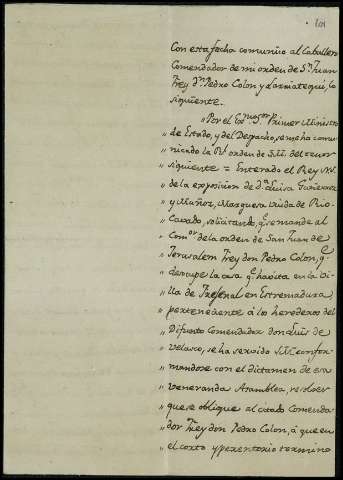 101
Con esta fecha comunico al Caballero
Comendador de mi orden de Sn. Juan
Frey Dn. Pedro Colon y Larreategui, lo
siguiente.
"Por el Exmo. Sor. Primer Ministro
" de Estado, y del Despacho, se me ha comu-
" nicado la Rl. orden de S.M. del tenor
" siguiente = Enterado el Rey N.S.
" de la exposicion de Da. Luisa Gutierrez
" y Muñoz, Marquesa viuda de Rio-
" Cavado, solicitando, qe. se mande al
" Comor. de la orden de San Juan de
" Jerusalem Frey don Pedro Colon, qe.
" desocupe la casa qe. habita en la Vi-
" lla de Fregenal en Estremadura
" perteneciente á los herederos del
" Difunto Comendador don Luis de
" Velasco, se ha servido S.M. confor-
" mandose con el dictamen de esa
" veneranda Asamblea, resolver
" que se oblique al citado Comenda-
" dor Frey don Pedro Colon, á que en
" el corto y perentorio termino